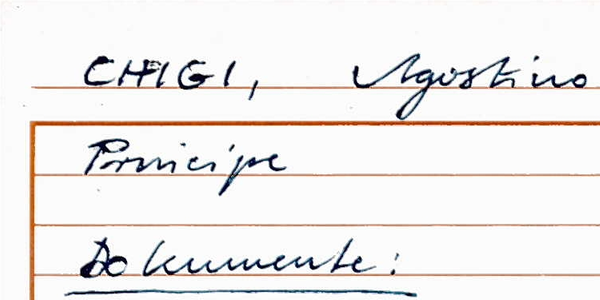 CHIGI, Agostino
Principe
Dokumente: